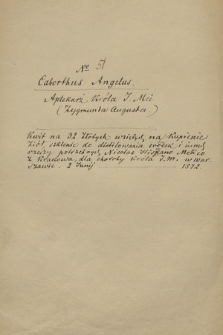 No 51
Caborthus Angelus.
Aptekarz Króla J. Mci
(Zygmunta Augusta.)
Kwit na 32 złotych wziętych na kupienie
ziół, szklenic do distillowania wódek i innych
rzeczy potrzebnych, Nicolao Hispano Medico
z Krakowa, dla choroby Króla J.M. w War
szawie. 2 Junij 1572.